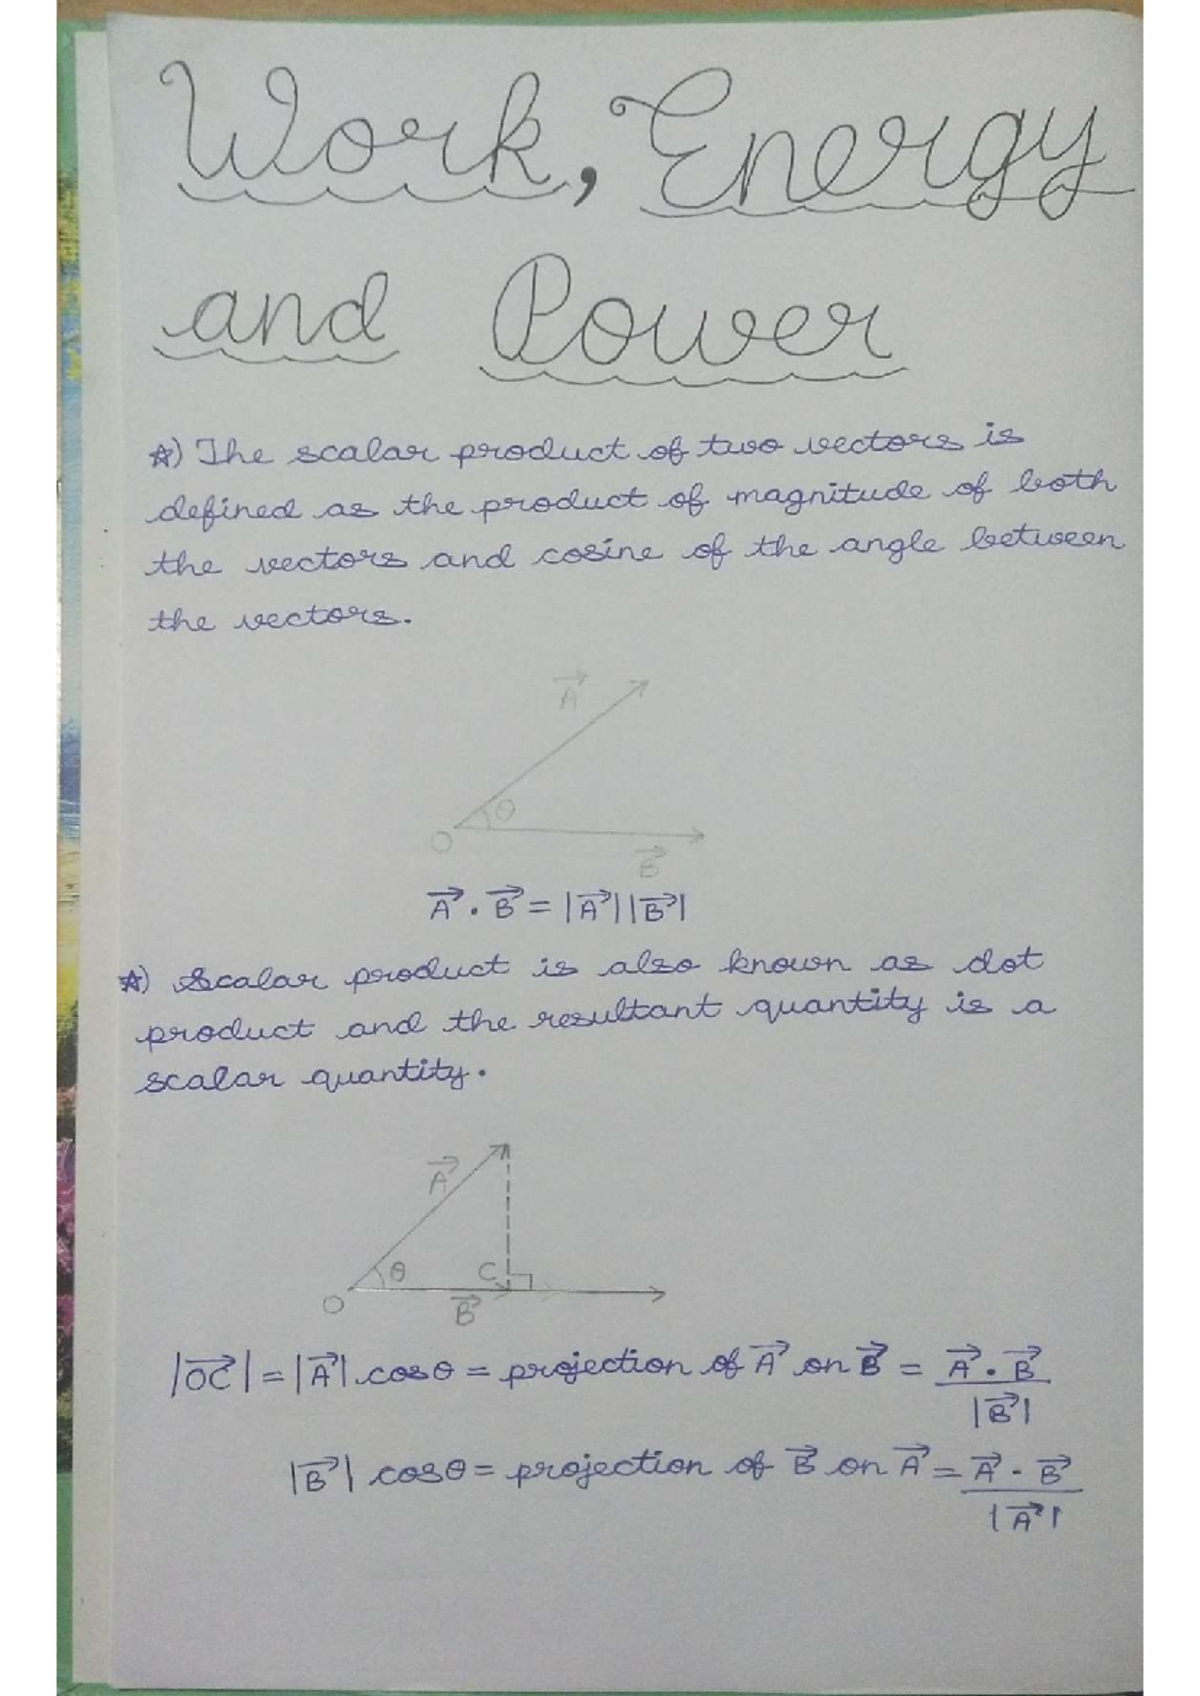 Work, Energy
and Power
☆) The scalar product of two vectors is
defined as the product of magnitude of both
the vectors and cosine of the angle between
the vectors.
A⃗
θ
O
B⃗
A⃗ . B⃗ = |A⃗||B⃗|
☆) Scalar product is also known as dot
product and the resultant quantity is a
scalar quantity.
A⃗
θ C
O
B⃗
|OC⃗| = |A⃗| cosθ = projection of A⃗ on B⃗ = A⃗ . B⃗
|B⃗|
|B⃗| cosθ = projection of B⃗ on A⃗ = A⃗ . B⃗
|A⃗|